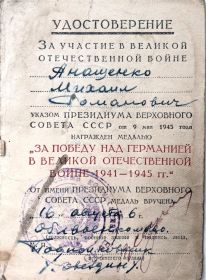 УДОСТОВЕРЕНИЕ
ЗА УЧАСТИЕ В ВЕЛИКОЙ
ОТЕЧЕСТВЕННОЙ ВОЙНЕ
Анащенко
Михаил
Романович
УКАЗОМ ПРЕЗИДИУМА ВЕРХОВНОГО
СОВЕТА СССР от 9 мая 1945 года
НАГРАЖДЕН МЕДАЛЬЮ
"ЗА ПОБЕДУ НАД ГЕРМАНИЕЙ
В ВЕЛИКОЙ ОТЕЧЕСТВЕННОЙ
ВОЙНЕ 1941—1945 гг."
ОТ ИМЕНИ ПРЕЗИДИУМА ВЕРХОВНОГО
СОВЕТА СССР МЕДАЛЬ ВРУЧЕНА
16 августа 6
Подполковник